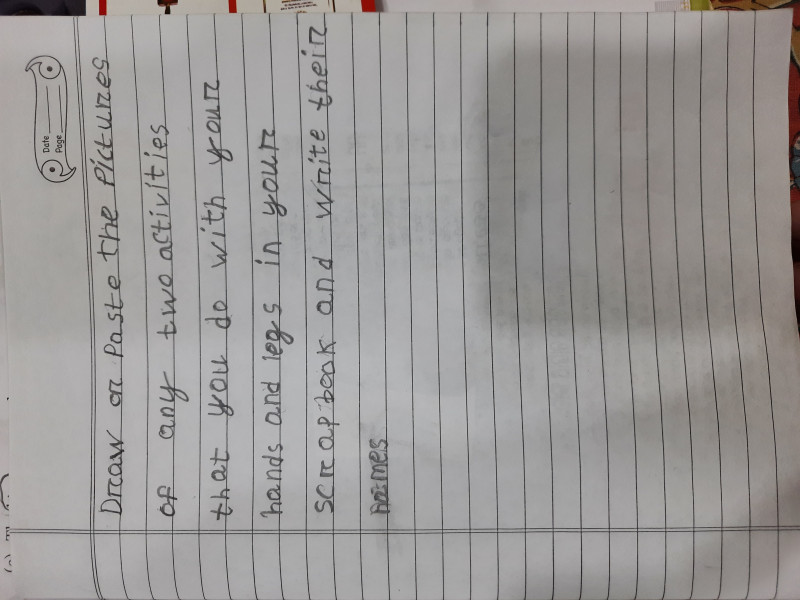 Date
Page
Draw or Paste the Pictures
of any two activities
that you do with your
hands and legs in your
scrapbook and write their
names